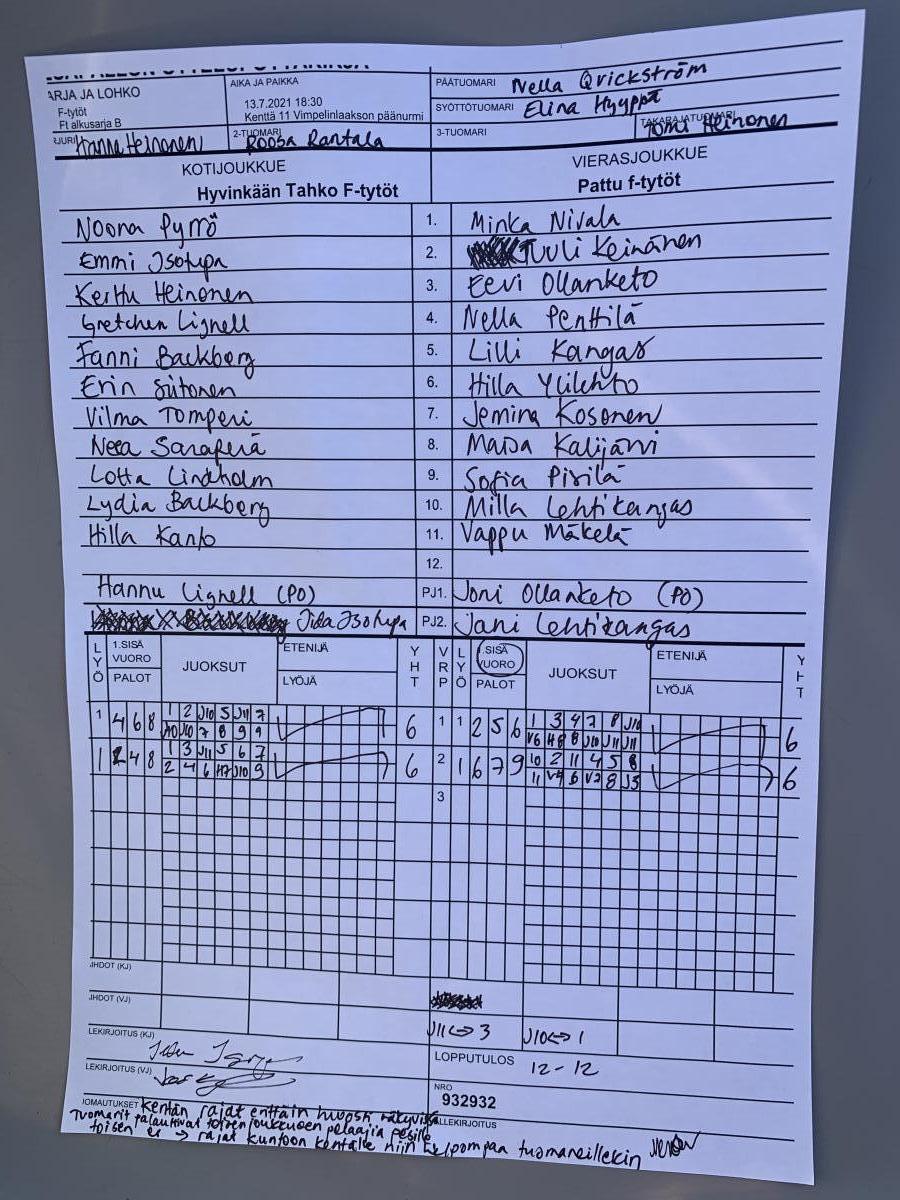 ARJA JA LOHKO
F-tytöt
Ft alkusarja B
AIKA JA PAIKKA
13.7.2021 18:30
Kenttä 11 Vimpelinlaakson päänurmi
PÄÄTUOMARI Nella Qvickström
SYÖTTÖTUOMARI Elina Hyyppä
Hanna Heinonen
2-TUOMARI Roosa Rantala
3-TUOMARI
TAKARAJATUOMARI Tomi Heinonen
KOTIJOUKKUE
Hyvinkään Tahko F-tytöt
VIERASJOUKKUE
Pattu f-tytöt
Noona Pyrrö 1. Minka Nivala
Emmi Isotupa 2. Tuuli Keinänen
Kerttu Heinonen 3. Eevi Ollanketo
Gretchen Lignell 4. Nella Penttilä
Fanni Backberg 5. Lilli Kangas
Erin Siitonen 6. Hilla Ylilehto
Vilma Tomperi 7. Jemina Kosonen
Neea 8. Maisa Kalijärvi
Lotta Lindholm 9. Sofia Pirilä
Lydia Backberg 10. Milla Lehtikangas
Hilla 11. Vappu Mäkelä
12.
Hannu Lignell (PO) PJ1. Joni Ollanketo (PO)
Isotupa PJ2. Jani Lehtikangas
LYÖ 1.SISÄVUORO PALOT JUOKSUT ETENIJÄ LYÖJÄ YHT VRP LYÖ 1.SISÄVUORO PALOT JUOKSUT ETENIJÄ LYÖJÄ YHT
1 4 6 8 1 2 J10 5 J11 7 6 1 1 2 5 6 1 3 4 7 8 J10 6
J10 7 8 9 9 V6 H8 8 J10 J11 J11
1 2 4 8 1 3 J11 5 6 7 6 2 1 6 7 9 10 2 11 4 5 8 6
2 4 6 H7 J10 9 11 V4 6 V7 8 J3
3
JHDOT (KJ)
JHDOT (VJ)
J11<->3 J10<->1
LEKIRJOITUS (KJ)
LOPPUTULOS 12-12
LEKIRJOITUS (VJ)
NRO
932932
ALLEKIRJOITUS
JOMAUTUKSET Kentän rajat erittäin huonosti näkyvissä
Tuomarit palauttivat toisen joukkueen pelaajia pesille
toisen ei -> rajat kuntoon kentälle niin helpompaa tuomareillekin